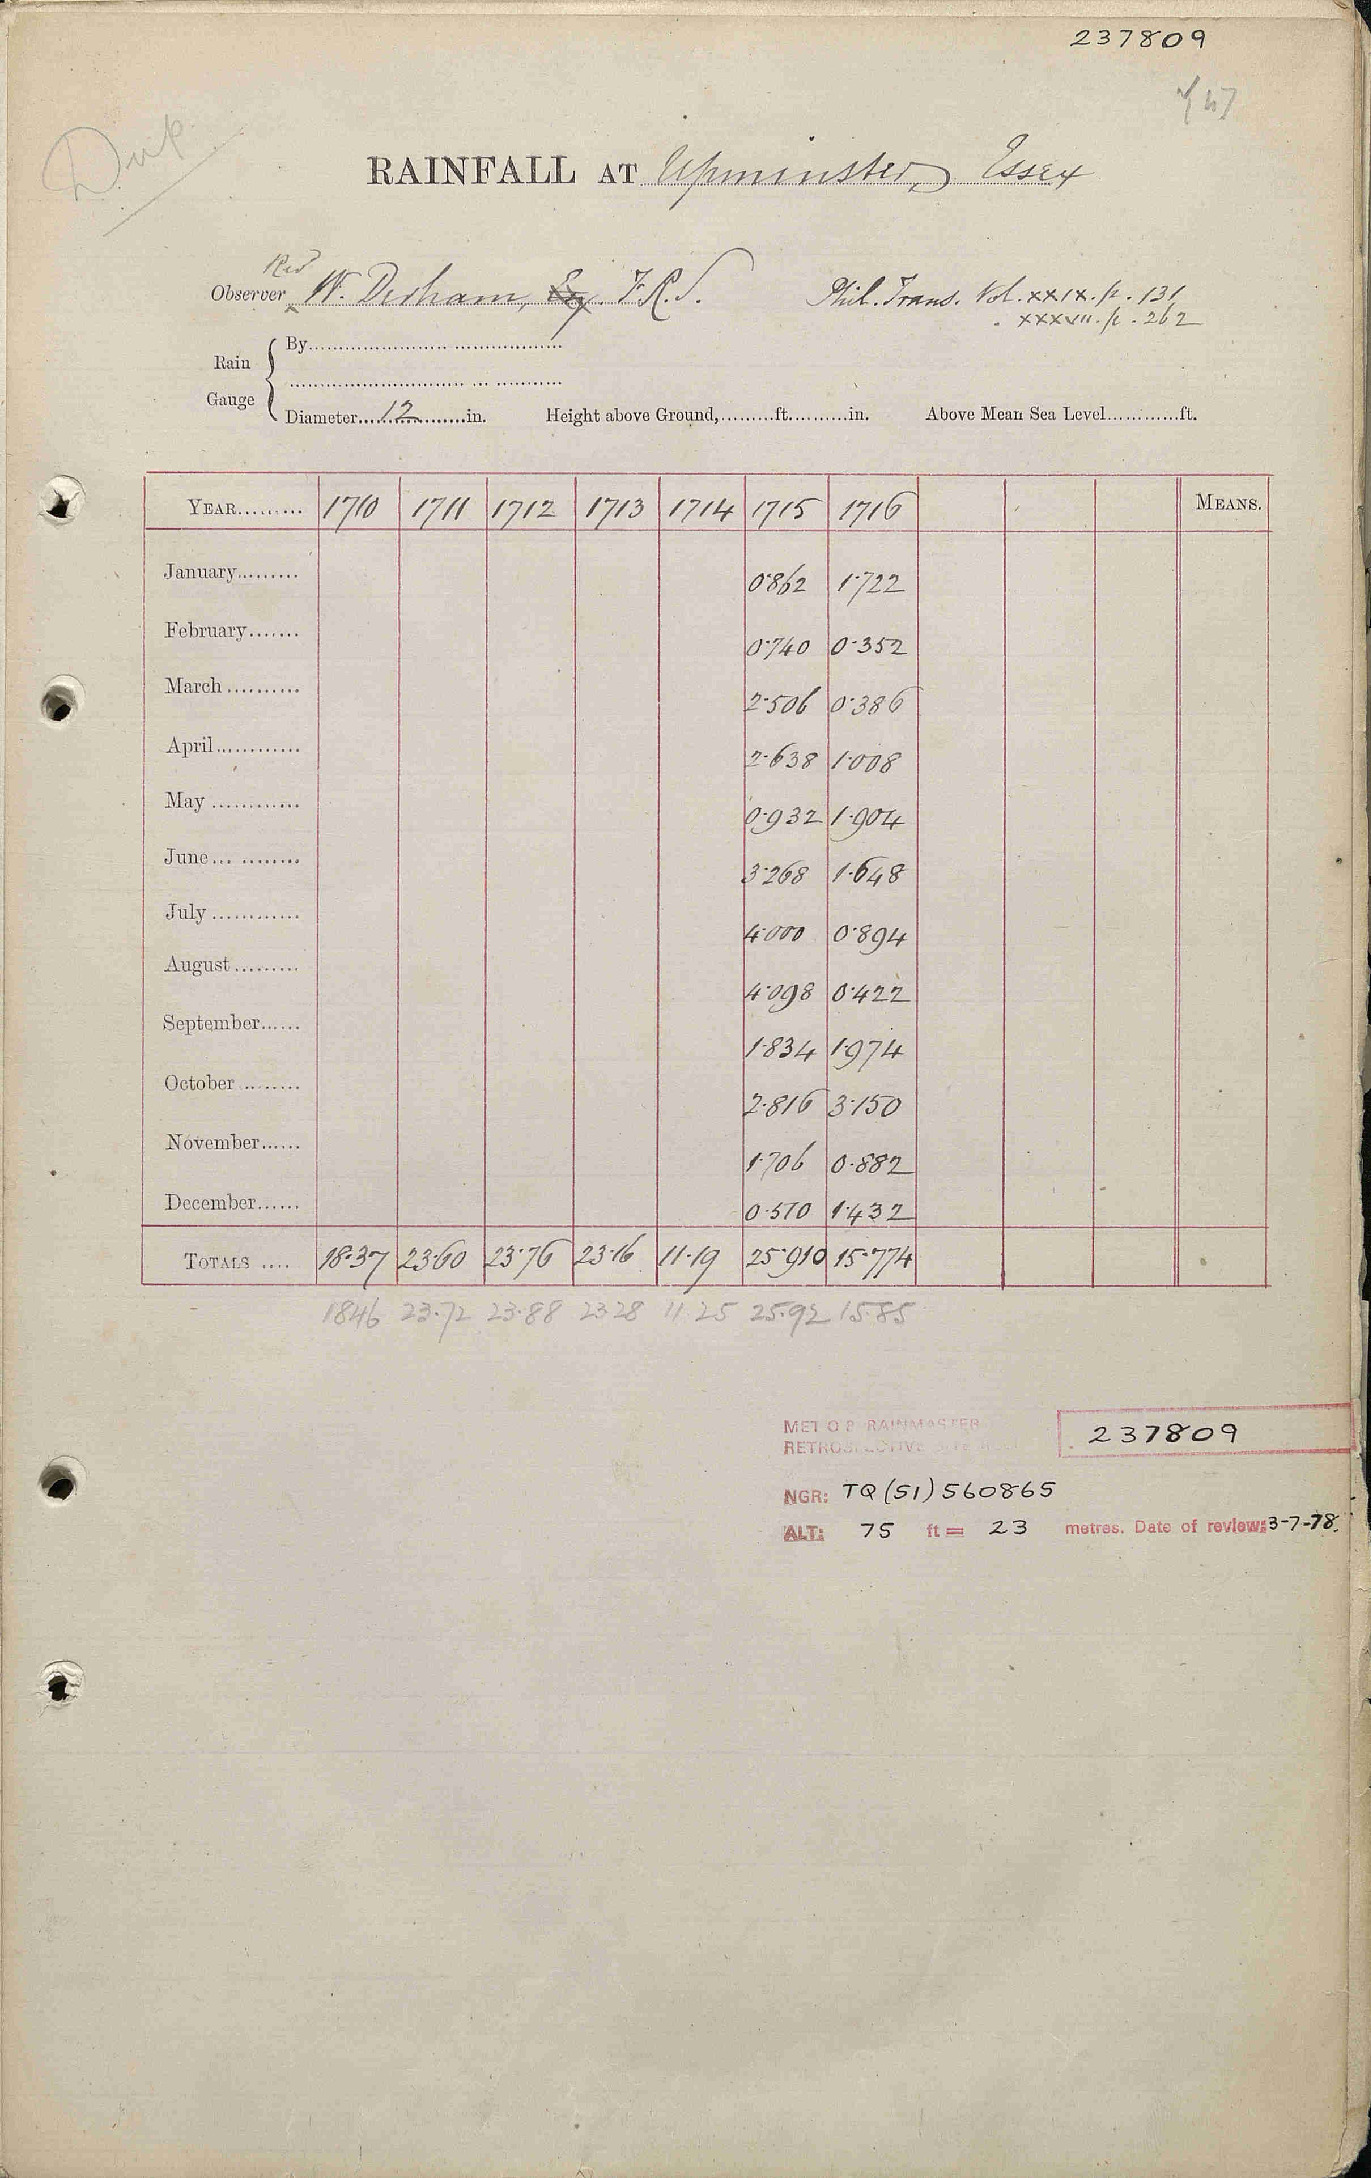 237809
Dup.
RAINFALL AT Upminster, Essex
Rev
Observer W. Derham, Esq. F.R.S. Phil. Trans. Vol. xxix. p. 131
xxxvii. p. 262
Rain Gauge
By
Diameter 12 in. Height above Ground, ft. in. Above Mean Sea Level ft.
YEAR 1710 1711 1712 1713 1714 1715 1716 MEANS.
January 0·862 1·722
February 0·740 0·352
March 2·506 0·386
April 2·638 1·008
May 0·932 1·904
June 3·268 1·648
July 4·000 0·894
August 4·098 0·422
September 1·834 1·974
October 2·816 3·150
November 1·706 0·882
December 0·510 1·432
TOTALS 18·37 23·60 23·76 23·16 11·19 25·910 15·774
1846 23·72 23·88 23 28 11·25 25.92 15.85
MET O 8 RAINMASTER
RETROSPECTIVE
237809
NGR: TQ (51) 560865
ALT: 75 ft = 23 metres. Date of review: 3-7-78.